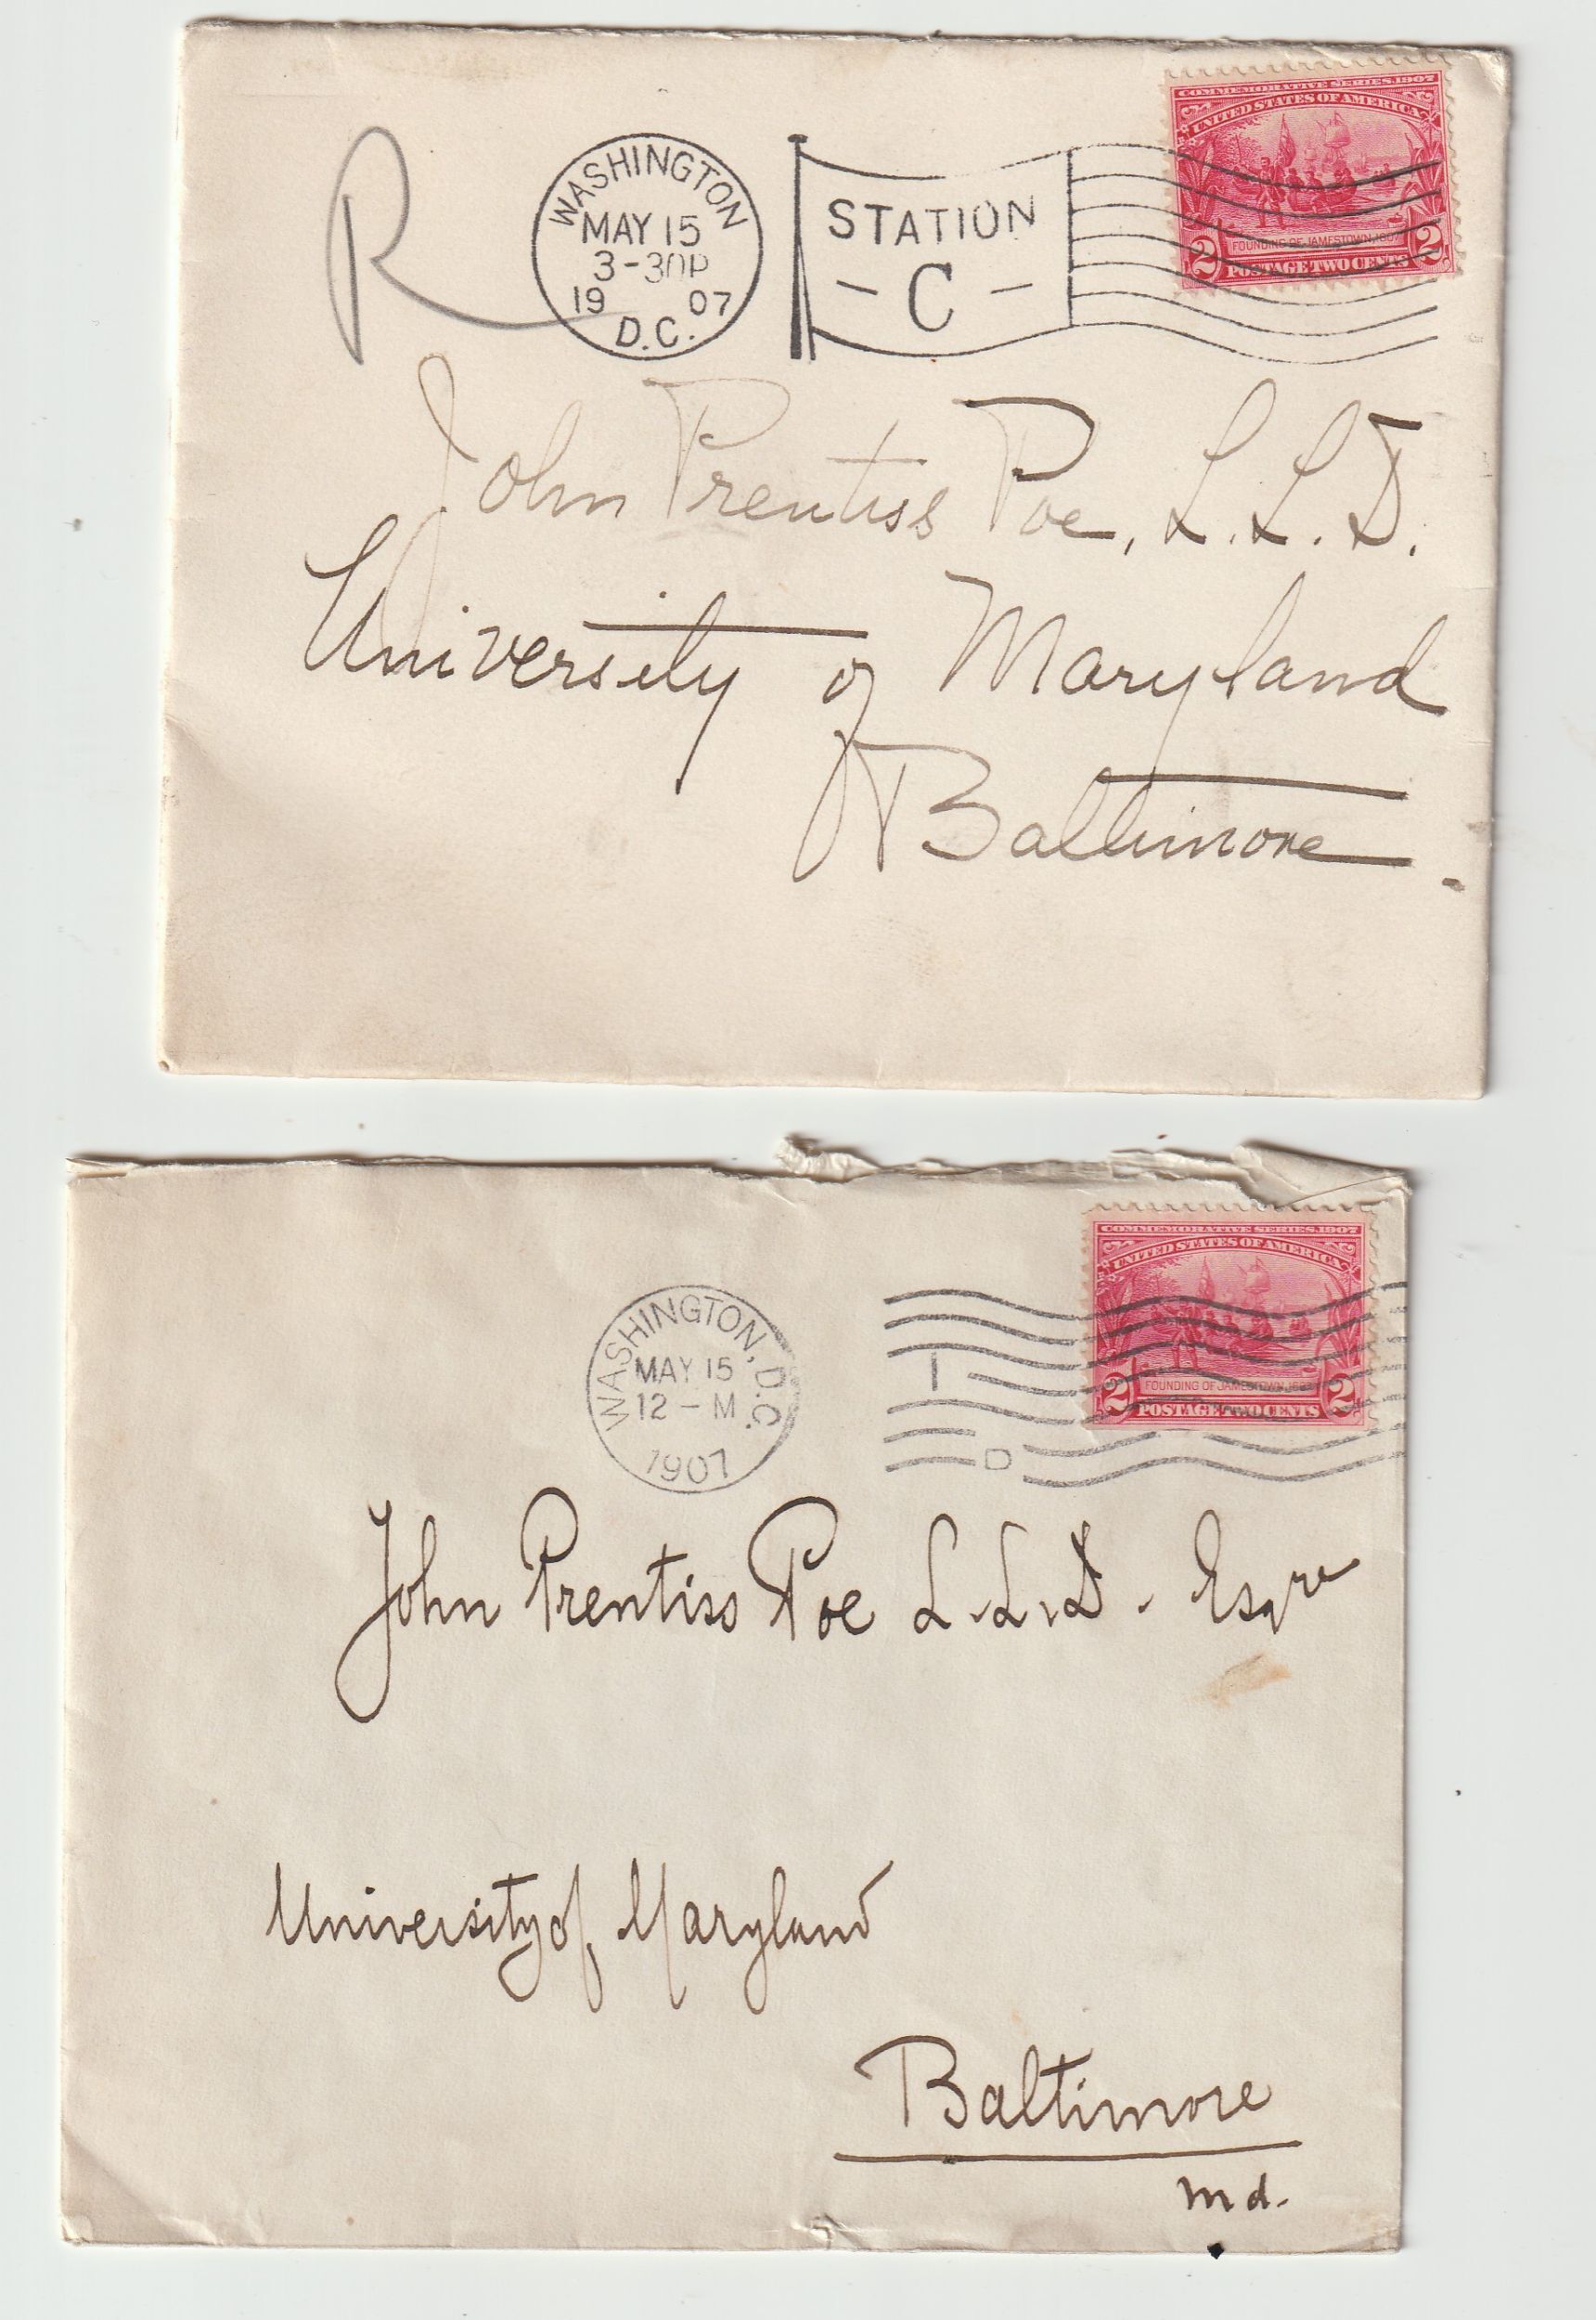 COMMEMORATIVE SERIES, 1907
UNITED STATES OF AMERICA
FOUNDING OF JAMESTOWN, 1607
2 2
POSTAGE TWO CENTS
R
WASHINGTON
MAY 15
3-30P
19 07
D.C.
STATION
- C -
John Prentiss Poe, L.L.D.
University of Maryland
Baltimore.
COMMEMORATIVE SERIES, 1907
UNITED STATES OF AMERICA
FOUNDING OF JAMESTOWN, 1607
2 2
POSTAGE TWO CENTS
WASHINGTON, D.C.
MAY 15
12 - M
1907
1
D
John Prentiss Poe L.L.D. Esqre
University of Maryland
Baltimore
Md.